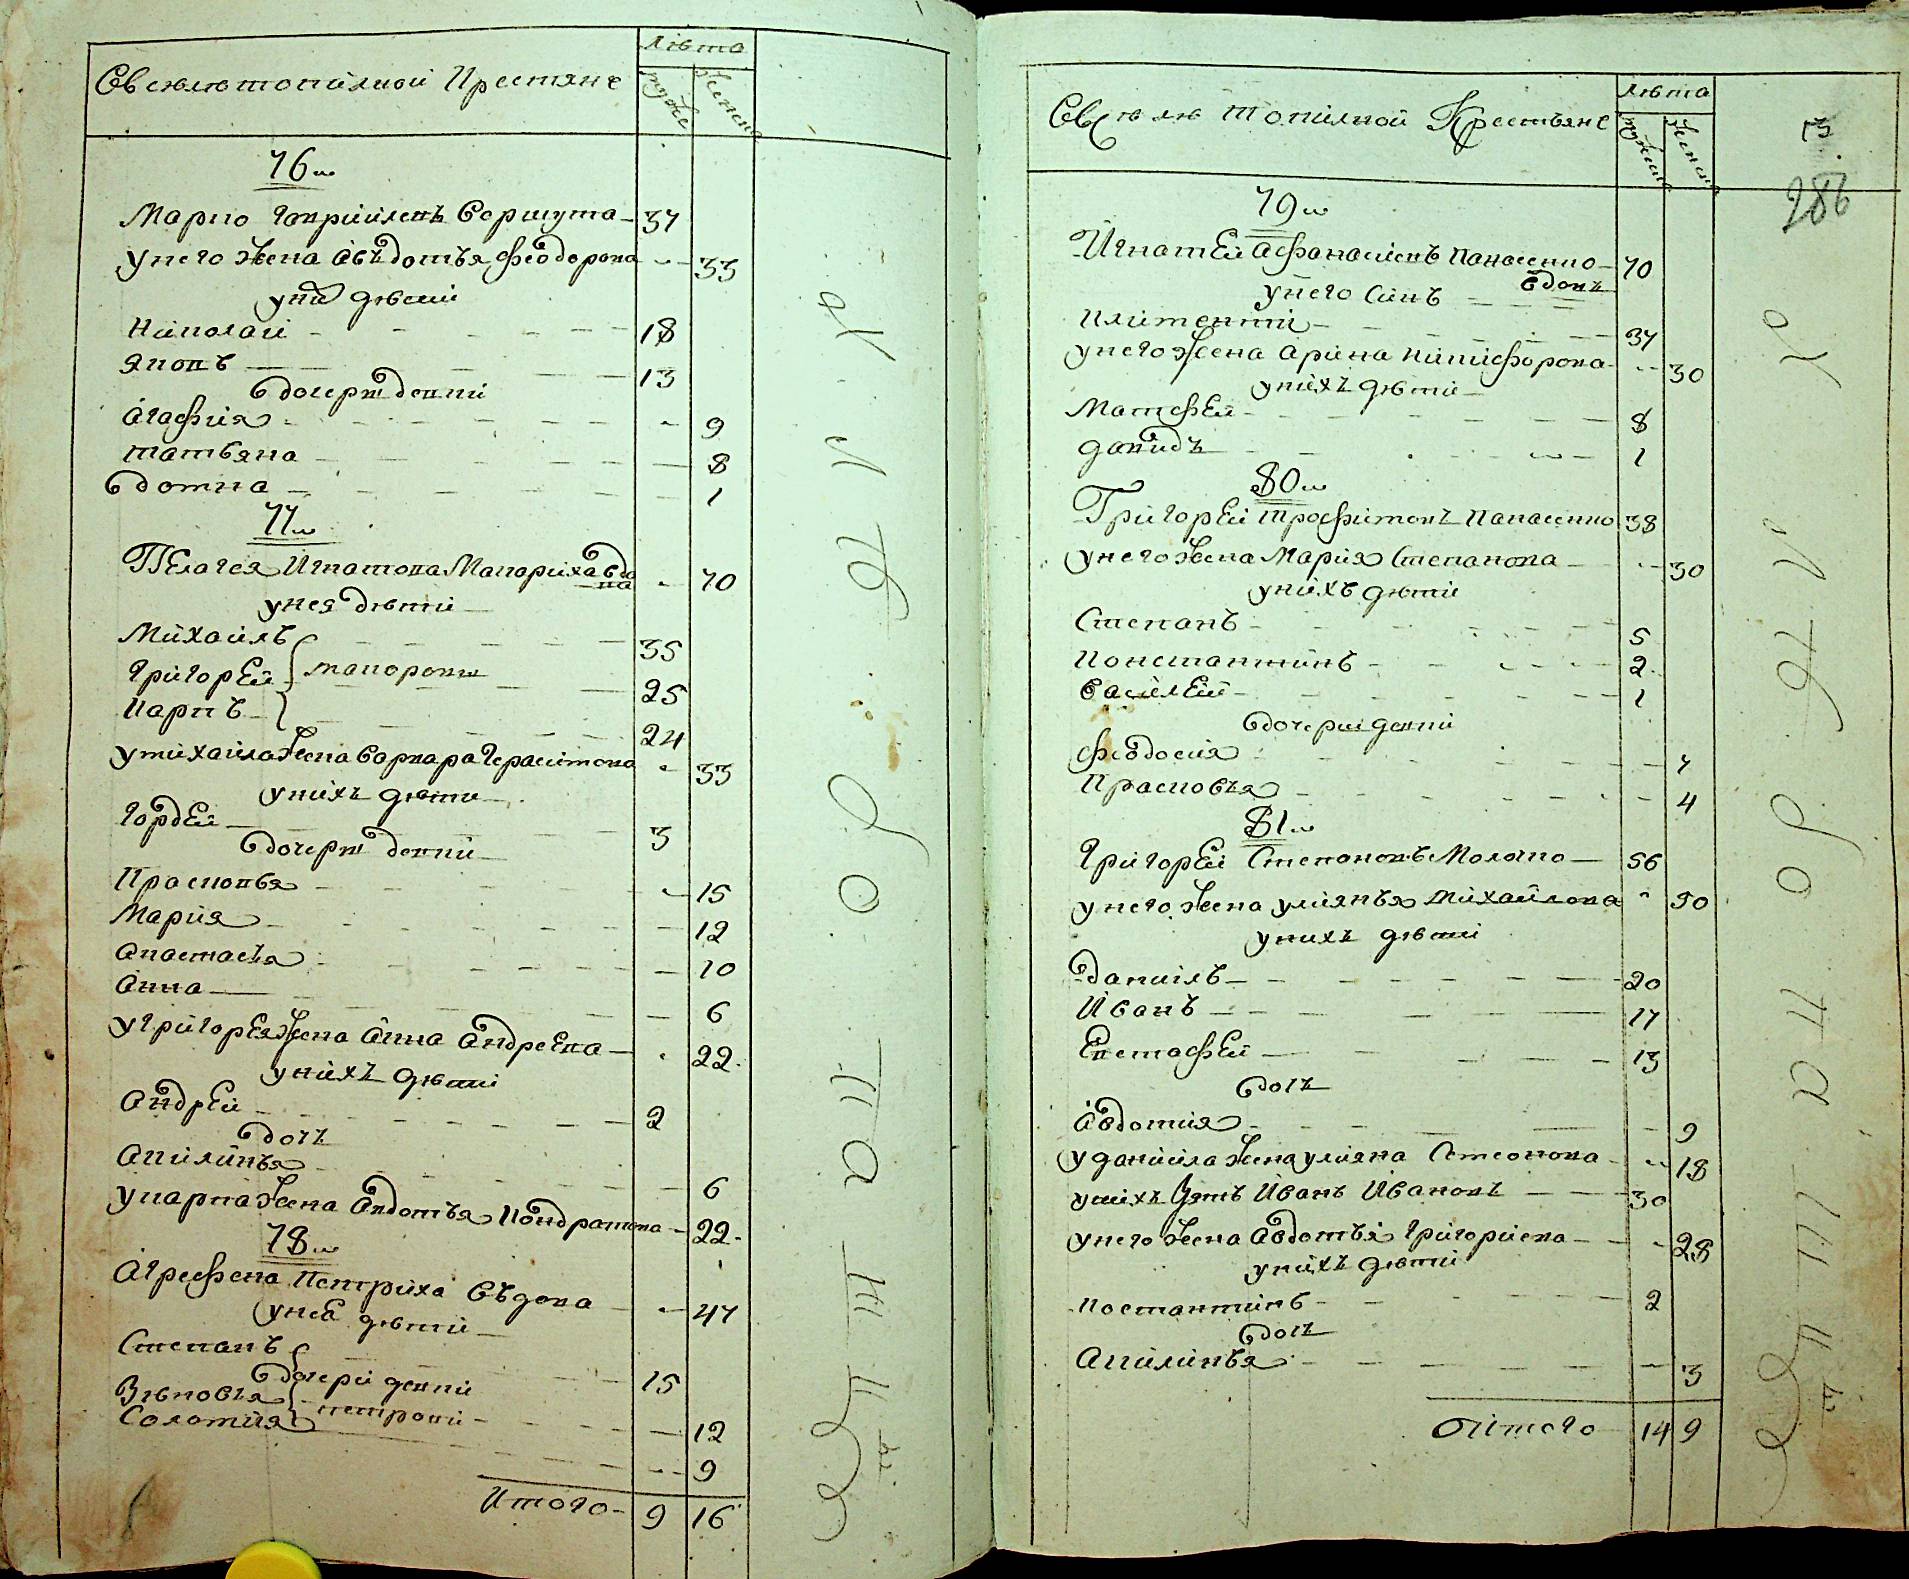 Всѣлѣ топилной Крестяне
Лѣта
муже
женс
76ш
Марко Гаврииловъ Воршула 37
у него жена Авъдотья Феодорова 33
у нихъ дѣти
Николай 18
Яковъ 13
Вдочери девки
Агафия 9
Татьяна 8
Вдотка 1
77ш
Пелагея Игнатова Макариха вдо
ва 70
у нея дѣти
Михаилъ 35
Григорей макаровы 25
Карпъ 24
у михайла жена Варвара Герасимова 33
у нихъ дѣти
Гордей 3
Вдочери девки
Прасковья 15
Мария 12
Анастасья 10
Анна 6
у Григорья жена Анна Андреева 22
у нихъ дѣти
Андрей 2
Вдочъ
Акилинья 6
у карпа жена Авдотья Кондратова 22
78ш
Агрефена Петриха Въдова 47
у нея дѣти
Степанъ 15
Вдочери девки
Зѣновья петровы 12
Соломия 9
Итого 9 16
Всѣлѣ Топилной Крестьяне
Лѣта
мужеск
женск
286
79ш
Игнатей Афанасиевъ Панасенко 70
вдовъ
у него Синъ
Климентий 37
у него жена Арина Никифорова 30
у нихъ дѣти
Матфей 8
Давидъ 1
80ш
Григорей Трофимовъ Панасенко 38
у него жена Мария Степанова 30
у нихъ дѣти
Степанъ 5
Констанътинъ 2
Василей 1
Вдочери девки
Феодосия 7
Прасковья 4
81ш
Григорей Степановъ Молочко 56
у него жена улиянья Михайлова 50
у нихъ дѣти
Данилъ 20
Иванъ 17
Евстафей 13
Вдочъ
Авдотия 9
у данийла жена улияна Семионова 18
у нихъ Зять Иванъ Ивановъ 30
у него жена Авдотья Григориева 28
у нихъ дѣти
Костантинъ 2
Вдочъ
Акилинья 3
Оитого 14 9